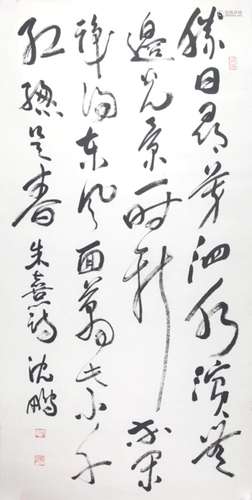 勝日尋芳泗水濱無
邊光景一時新等閑
識得東風面萬紫千
紅總是春 朱熹詩 沈鵬